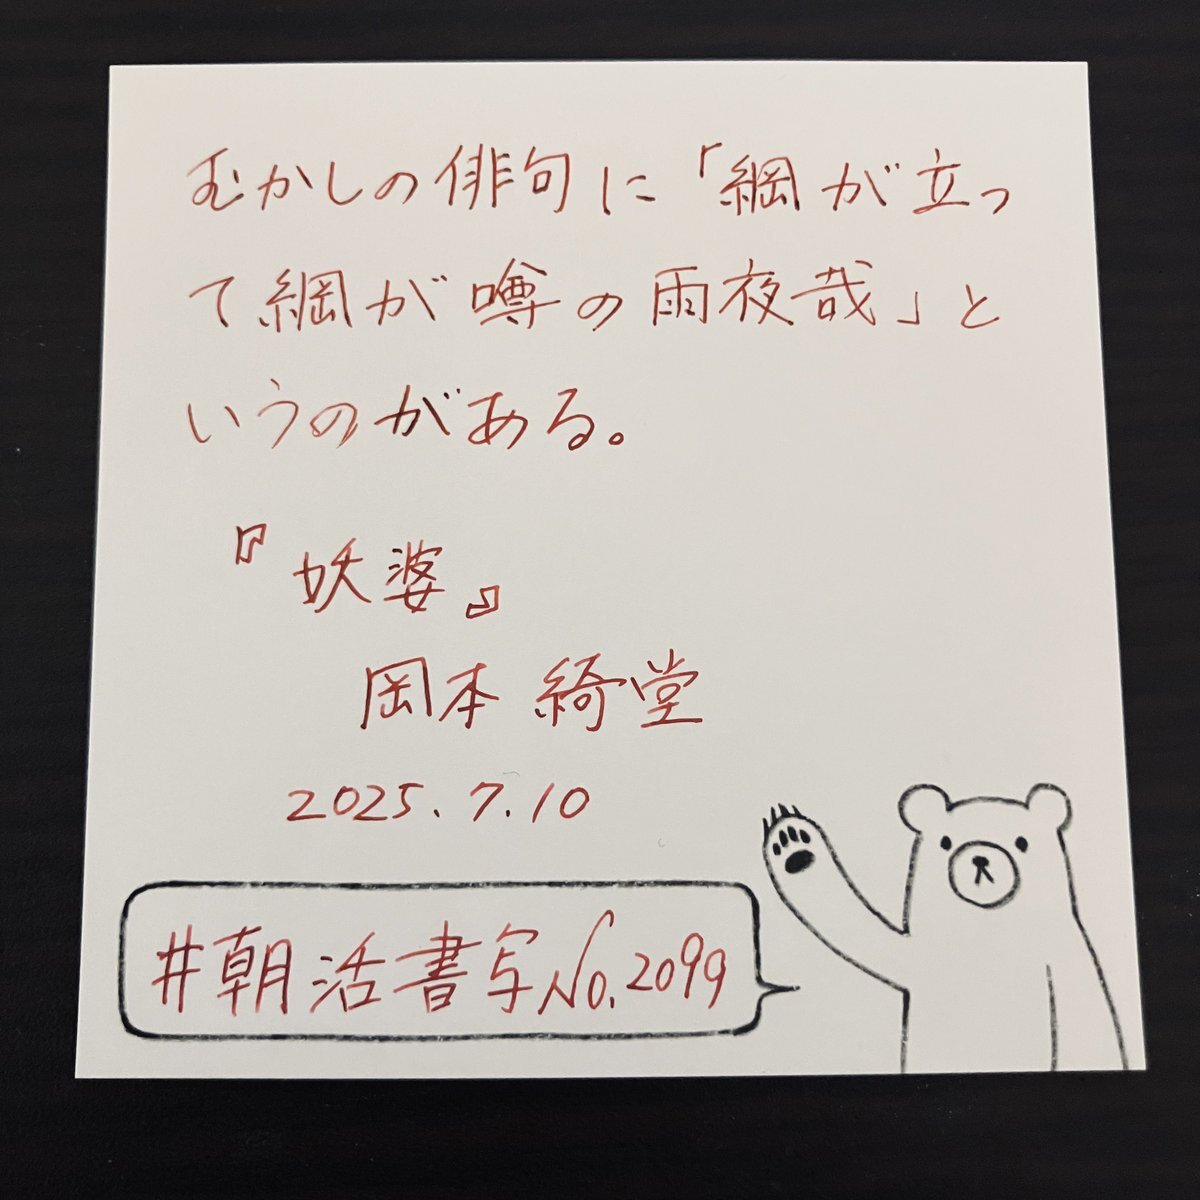 むかしの俳句に「綱が立っ
て綱が噂の雨夜哉」と
いうのがある。
『妖婆』
岡本綺堂
2025.7.10
#朝活書写No.2099